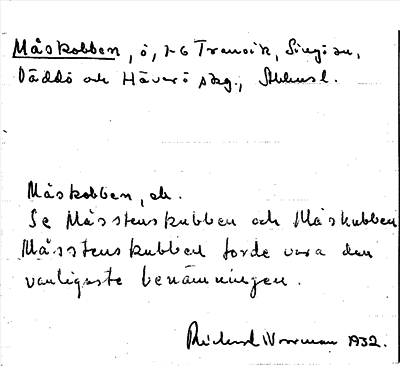 Måskobben, ö, 1-6 Tranvik, Singö sn,
Väddö och Häverö skg., Sthmsl.
Måskobben, ö.
Se Måsstenskubben och Måskubben
Måsstenskubben torde vara den
vanligaste benämningen.
Rickard Norrman 1932.